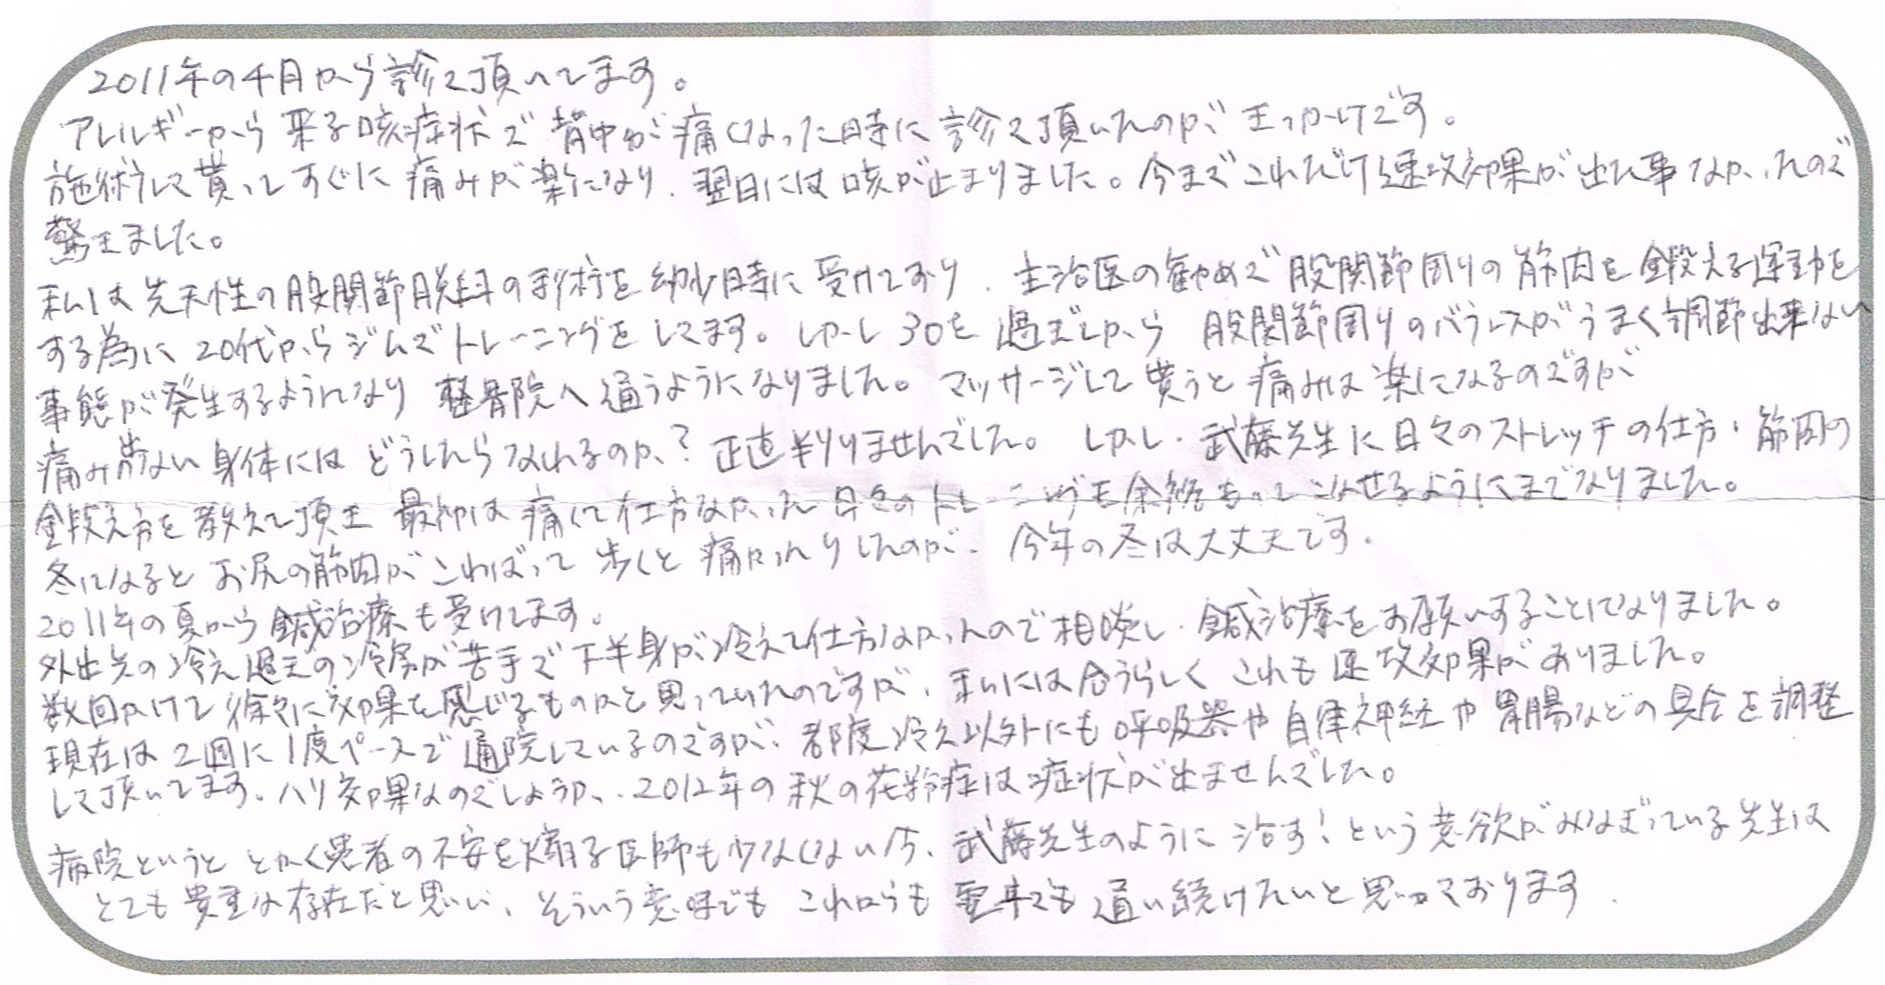 2011年の4月から診て頂いてます。
アレルギーから来る咳症状で背中が痛くなった時に診て頂いたのがきっかけです。
施術して貰ってすぐに痛みが楽になり、翌日には咳が止まりました。今までこれだけ速攻効果が出た事なかったので
驚きました。
私は先天性の股関節脱臼の手術を幼少時に受けており、主治医の勧めで股関節周りの筋肉を鍛える運動を
する為に20代からジムでトレーニングをしてます。しかし30を過ぎてから股関節周りのバランスがうまく調節出来ない
事態が発生するようになり整骨院へ通うようになりました。マッサージして貰うと痛みは楽になるのですが
痛み出ない身体にはどうしたらなれるのか?正直判りませんでした。しかし、武藤先生に日々のストレッチの仕方、筋肉の
鍛え方を教えて頂き最初は痛くて仕方なかった日々のトレーニングも余裕もってこなせるようにまでなりました。
冬になるとお尻の筋肉がこわばって歩くと痛かったりしたのが、今年の冬は大丈夫です.
2011年の夏から鍼治療も受けてます。
外出先の冷え過ぎの冷房が苦手で下半身が冷えて仕方なかったので相談し、鍼治療をお願いすることになりました。
数回かけて徐々に効果を感じるものかと思っていたのですが、私には合うらしくこれも速攻効果がありました。
現在は2週に1度ペースで通院しているのですが、都度冷え以外にも呼吸器や自律神経や胃腸などの具合を調整
して頂いてます。ハリ効果なのでしょうか、2012年の秋の花粉症は症状が出ませんでした。
病院というととかく患者の不安を煽る医師も少なくない所、武藤先生のように治す!という意欲がみなぎっている先生は
とても貴重な存在だと思い、そういう意味でもこれからも電車でも通い続けたいと思っております.